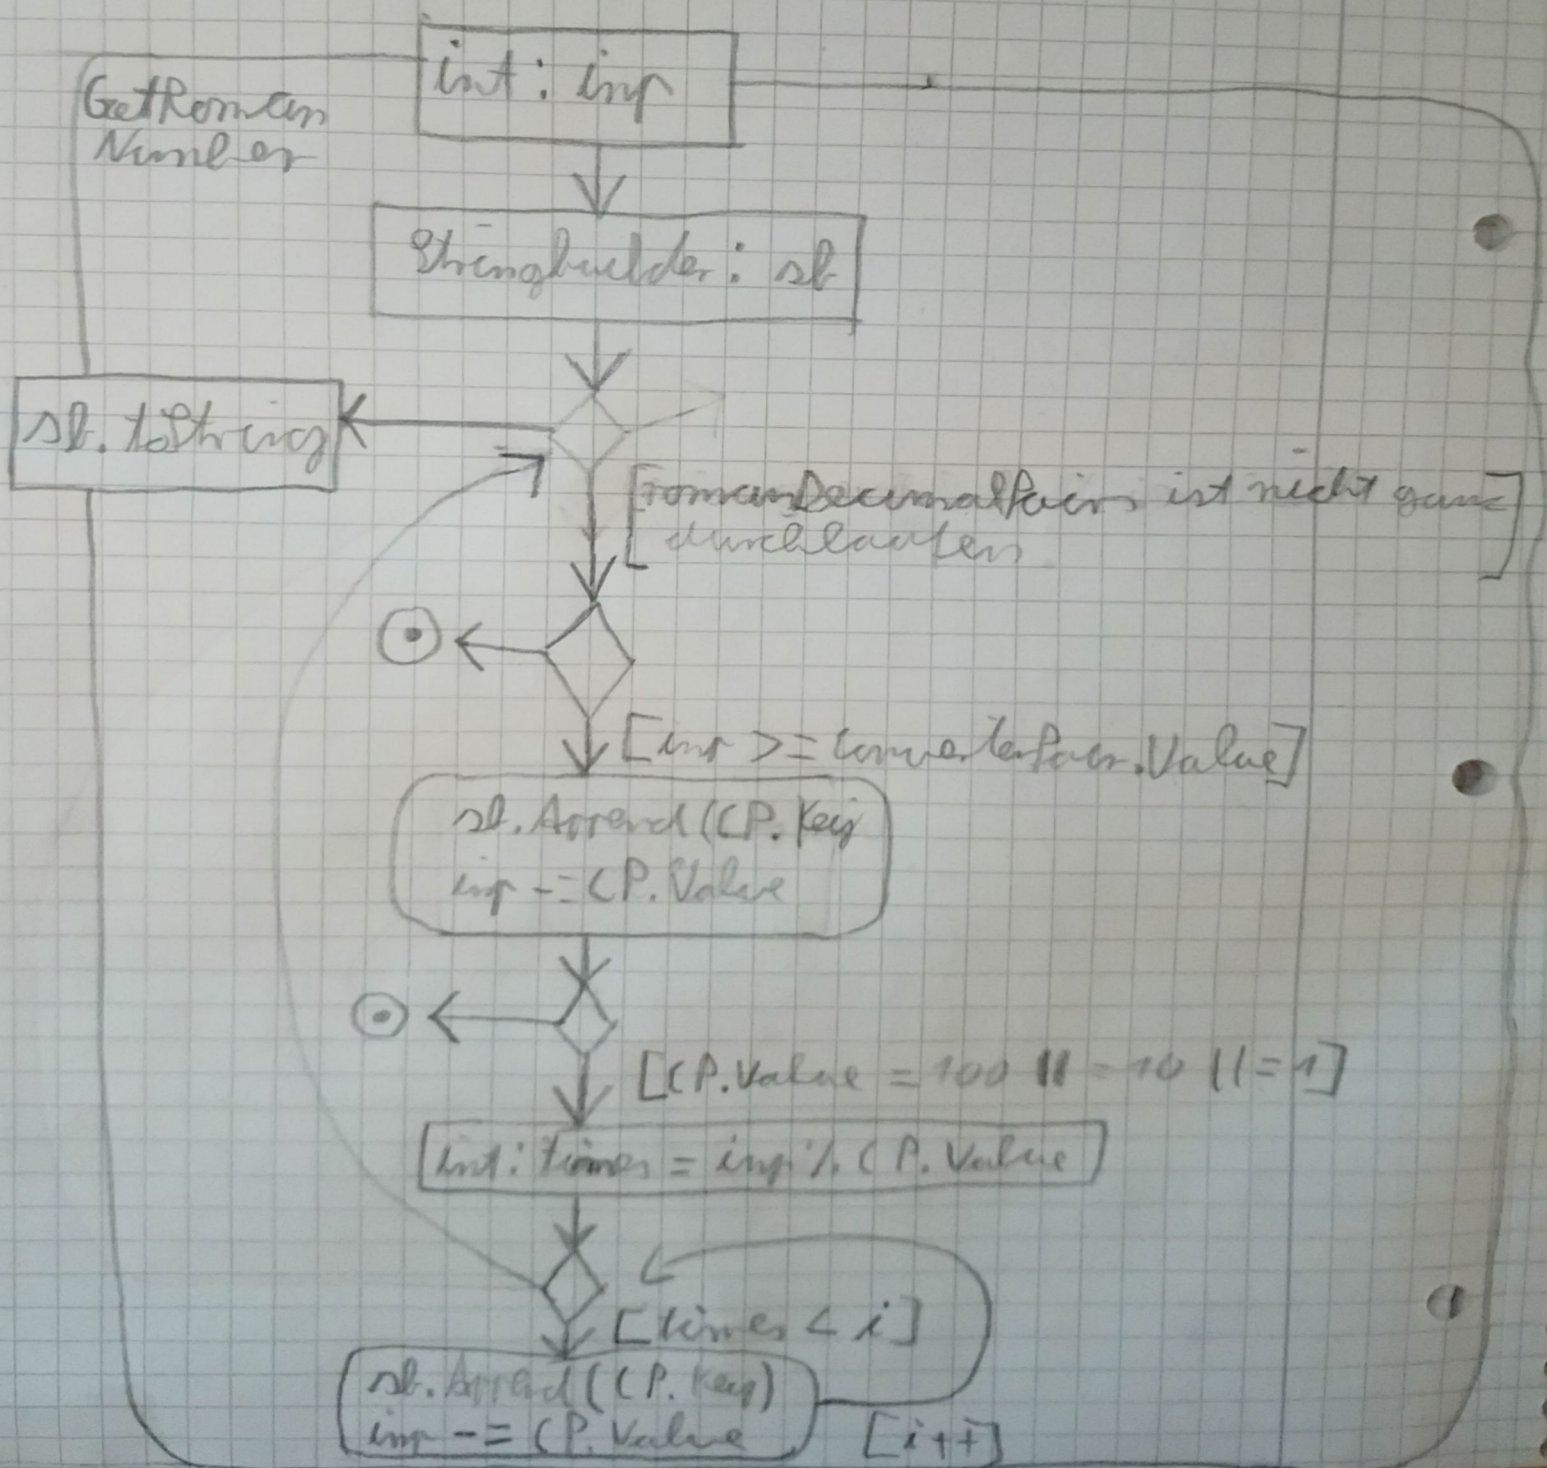 int: inp
GetRoman
Number
Stringbuilder: sb
sb.toString
[romanDecimalPairs ist nicht ganz
durchlaufen]
[inp >= ConverterPair.Value]
sb.Append(CP.Key
inp -= CP.Value
[CP.Value = 100 || = 10 || = 1]
int: times = inp % CP.Value
[times < i]
sb.Append(CP.Key)
inp -= CP.Value
[i++]